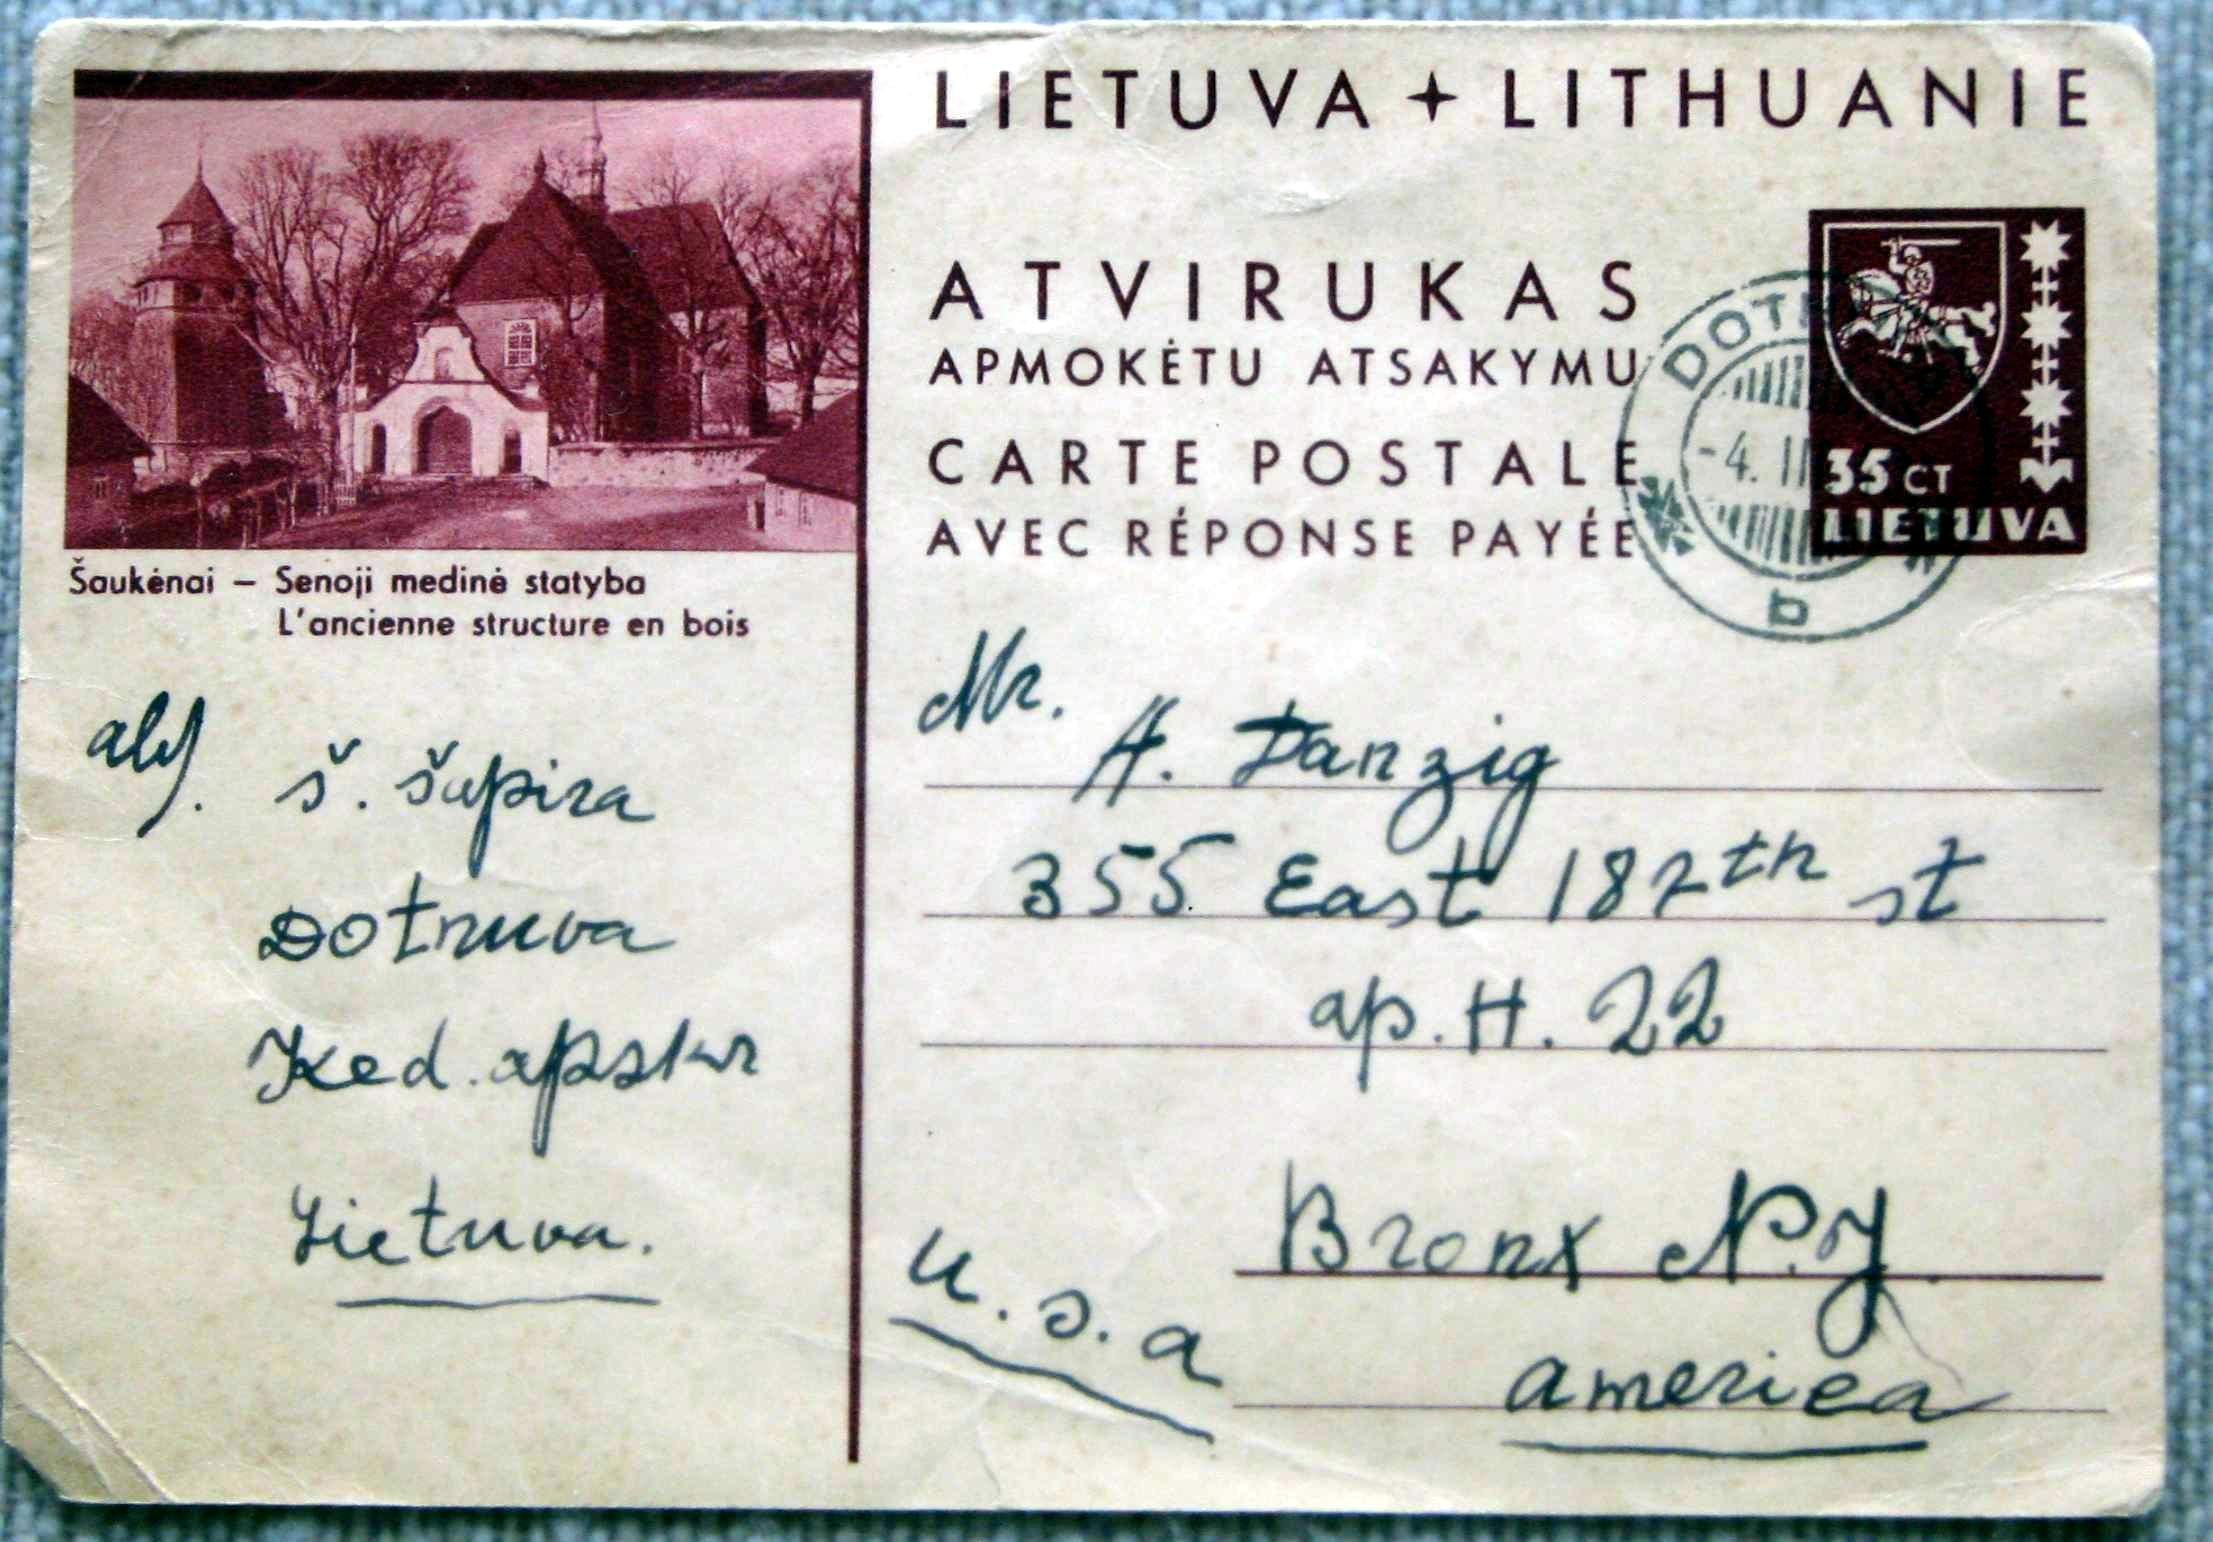 LIETUVA + LITHUANIE
ATVIRUKAS
APMOKĖTU ATSAKYMU
CARTE POSTALE
AVEC RÉPONSE PAYÉE
DOT
-4. II
b
35 CT
LIETUVA
Šaukėnai – Senoji medinė statyba
L'ancienne structure en bois
Š. Šapira
Dotnuva
Ked. apskr
Lietuva.
Mr.
A. Danzig
355 East 187th st
ap. H. 22
Bronx N.Y.
u. s. a
america